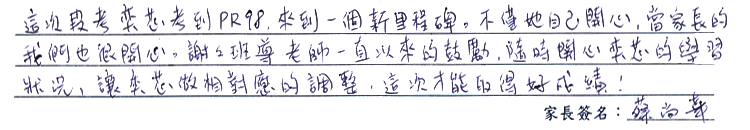 這次段考奕芯考到PR98,來到一個新里程碑。不僅她自己開心,當家長的
我們也很開心。謝謝班導老師一直以來的鼓勵,隨時關心奕芯的學習
狀況,讓奕芯做相對應的調整,這次才能取得好成績!
家長簽名:蘇尚華